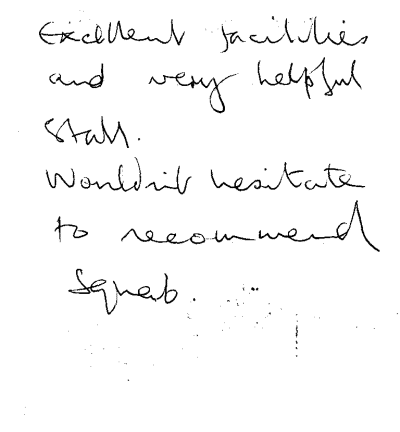 Excellent facilities
and very helpful
staff.
Wouldn't hesitate
to recommend
Squab.